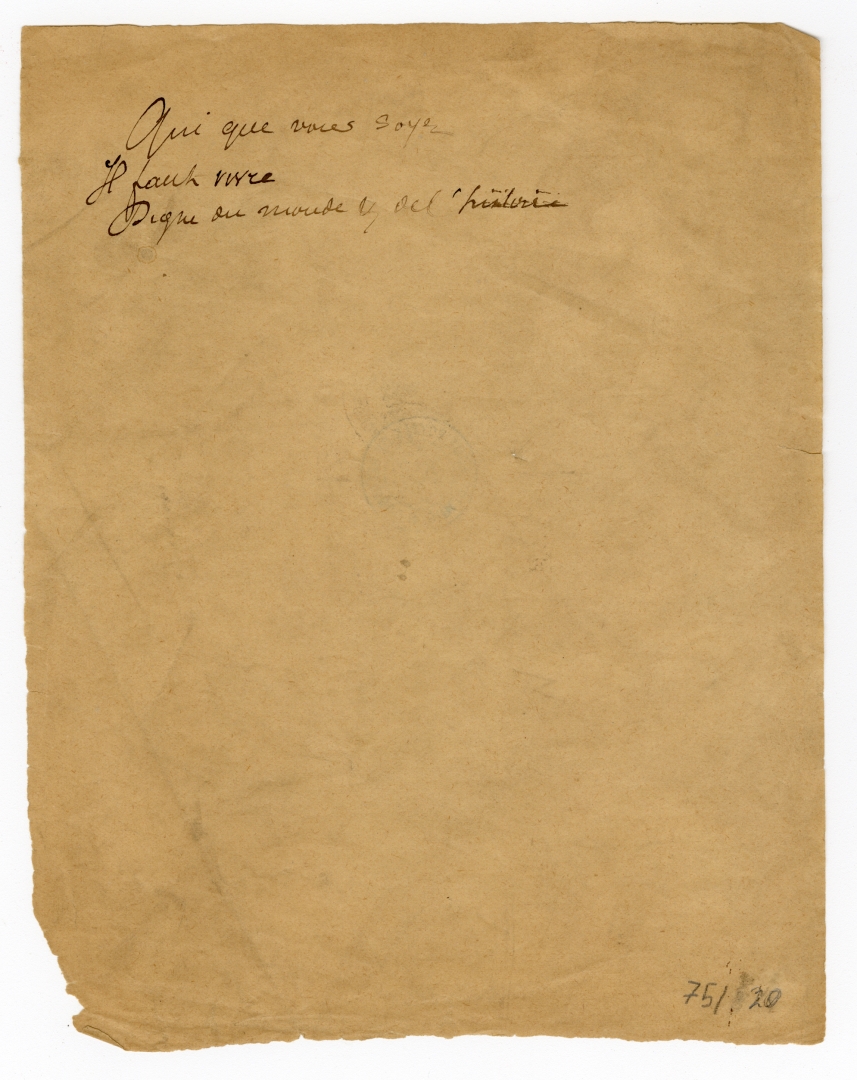 Qui que vous soyez
Il faut vivre
Digne du monde & de l'histoire
75/ 20